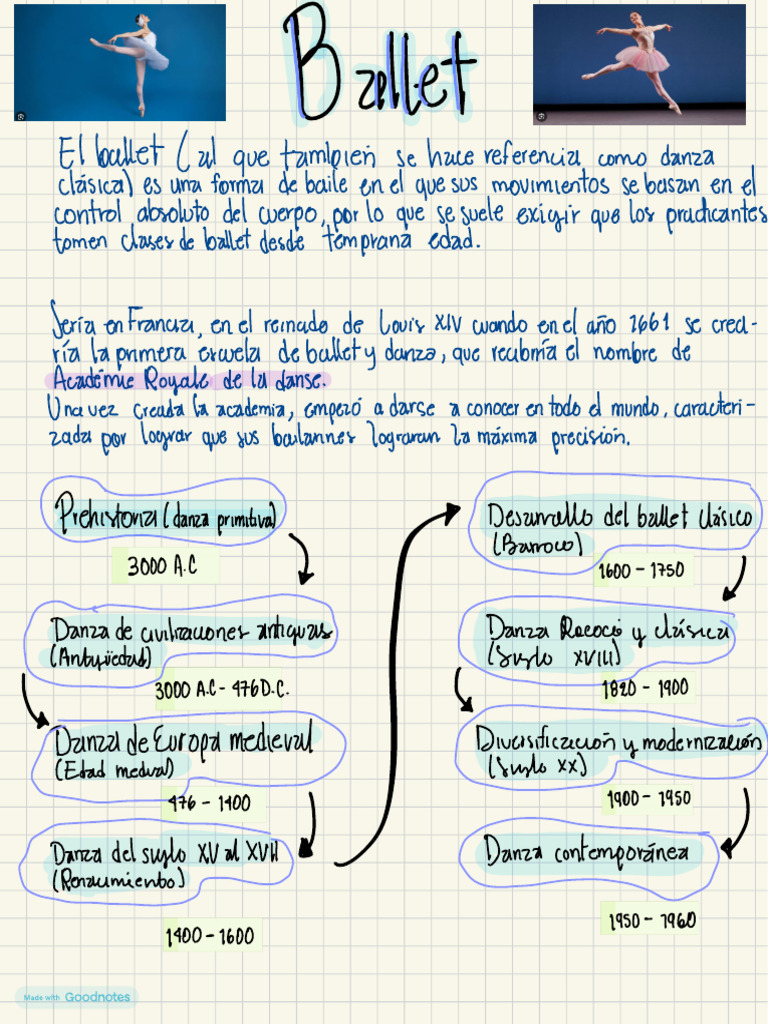 Ballet
El ballet (al que también se hace referencia como danza
clásica) es una forma de baile en el que sus movimientos se basan en el
control absoluto del cuerpo, por lo que se suele exigir que los practicantes
tomen clases de ballet desde temprana edad.
Sería en Francia, en el reinado de Louis XIV cuando en el año 1661 se crea-
ría la primera escuela de ballet y danza, que recibiría el nombre de
Académie Royale de la danse.
Una vez creada la academia, empezó a darse a conocer en todo el mundo, caracteri-
zada por lograr que sus bailarines lograran la máxima precisión.
Prehistoria (danza primitiva)
3000 A.C
Danza de civilizaciones antiguas
(Antigüedad)
3000 A.C - 476 D.C.
Danza de Europa medieval
(Edad media)
476 - 1400
Danza del siglo XV al XVII
(Renacimiento)
1400 - 1600
Desarrollo del ballet clásico
(Barroco)
1600 - 1750
Danza Rococó y clásica
(Siglo XVIII)
1820 - 1900
Diversificación y modernización
(Siglo XX)
1900 - 1950
Danza contemporánea
1950 - 1960
Made with Goodnotes